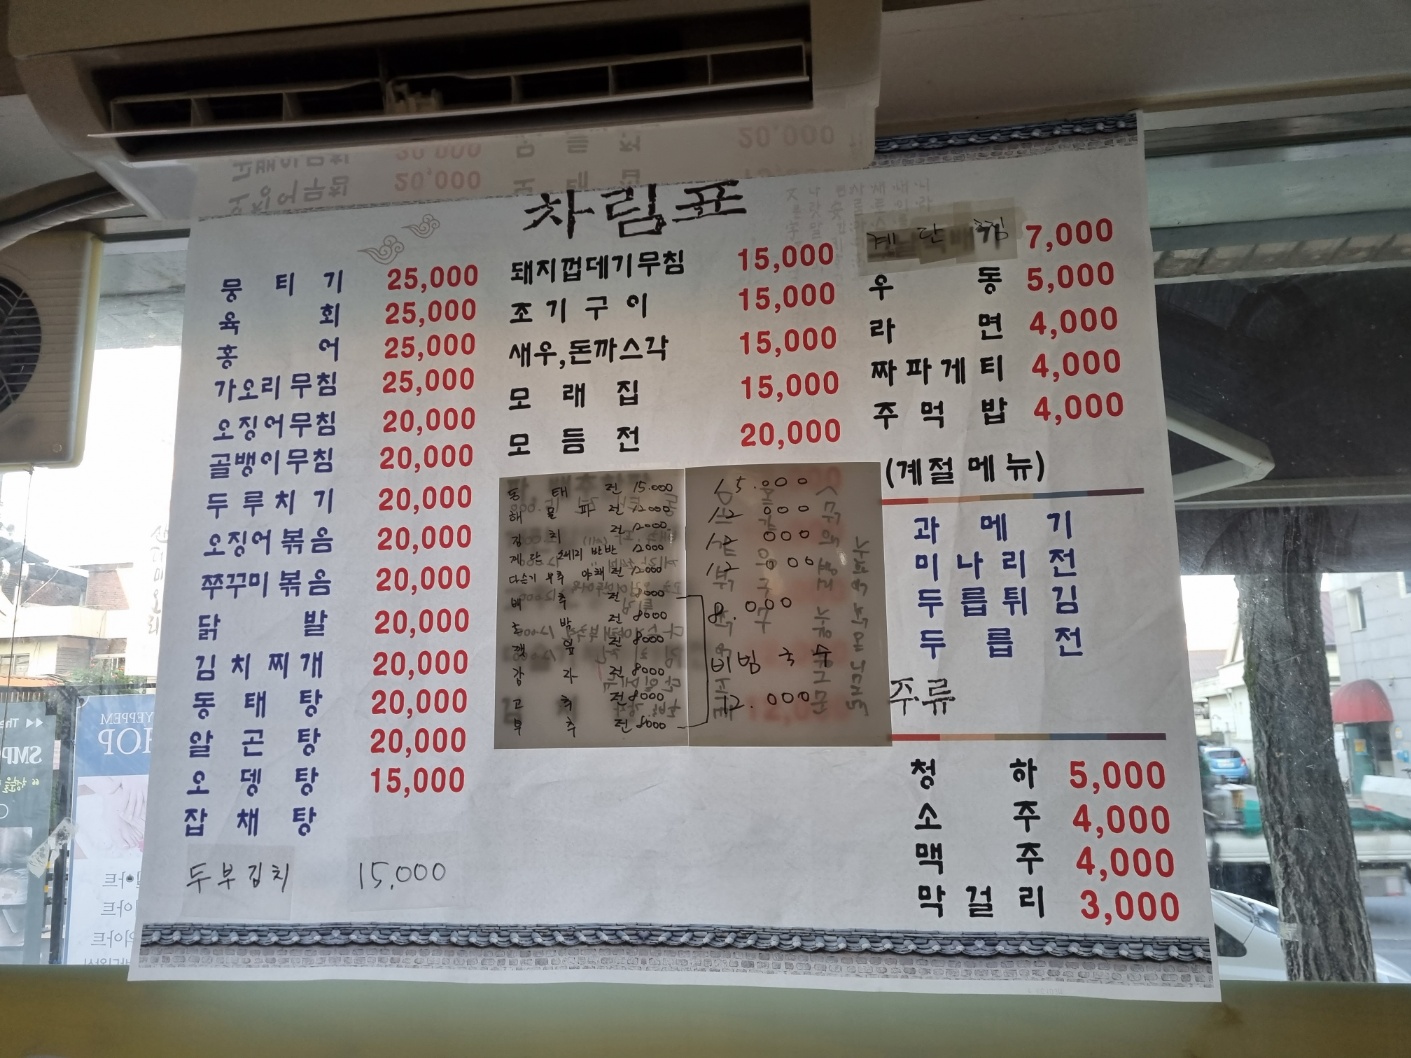 차림표
뭉티기 25,000
육회 25,000
홍어 25,000
가오리무침 25,000
오징어무침 20,000
골뱅이무침 20,000
두루치기 20,000
오징어볶음 20,000
쭈꾸미볶음 20,000
닭발 20,000
김치찌개 20,000
동태탕 20,000
알곤탕 20,000
오뎅탕 15,000
잡채탕
두부김치 15,000
돼지껍데기무침 15,000
조기구이 15,000
새우,돈까스각 15,000
모래집 15,000
모듬전 20,000
동태전 15.000
해물파전 12000
김치전 12000
계란소세지반반 12000
야채전 12000
배추전 8000
호박전 8000
전 8000
감자전 8000
고추전 8000
부추전 8000
15.000
12.000
12.000
12.000
8.000
비빔국수
12.000
계란찜 7,000
우동 5,000
라면 4,000
짜파게티 4,000
주먹밥 4,000
(계절메뉴)
과메기
미나리전
두릅튀김
두릅전
주류
청하 5,000
소주 4,000
맥주 4,000
막걸리 3,000